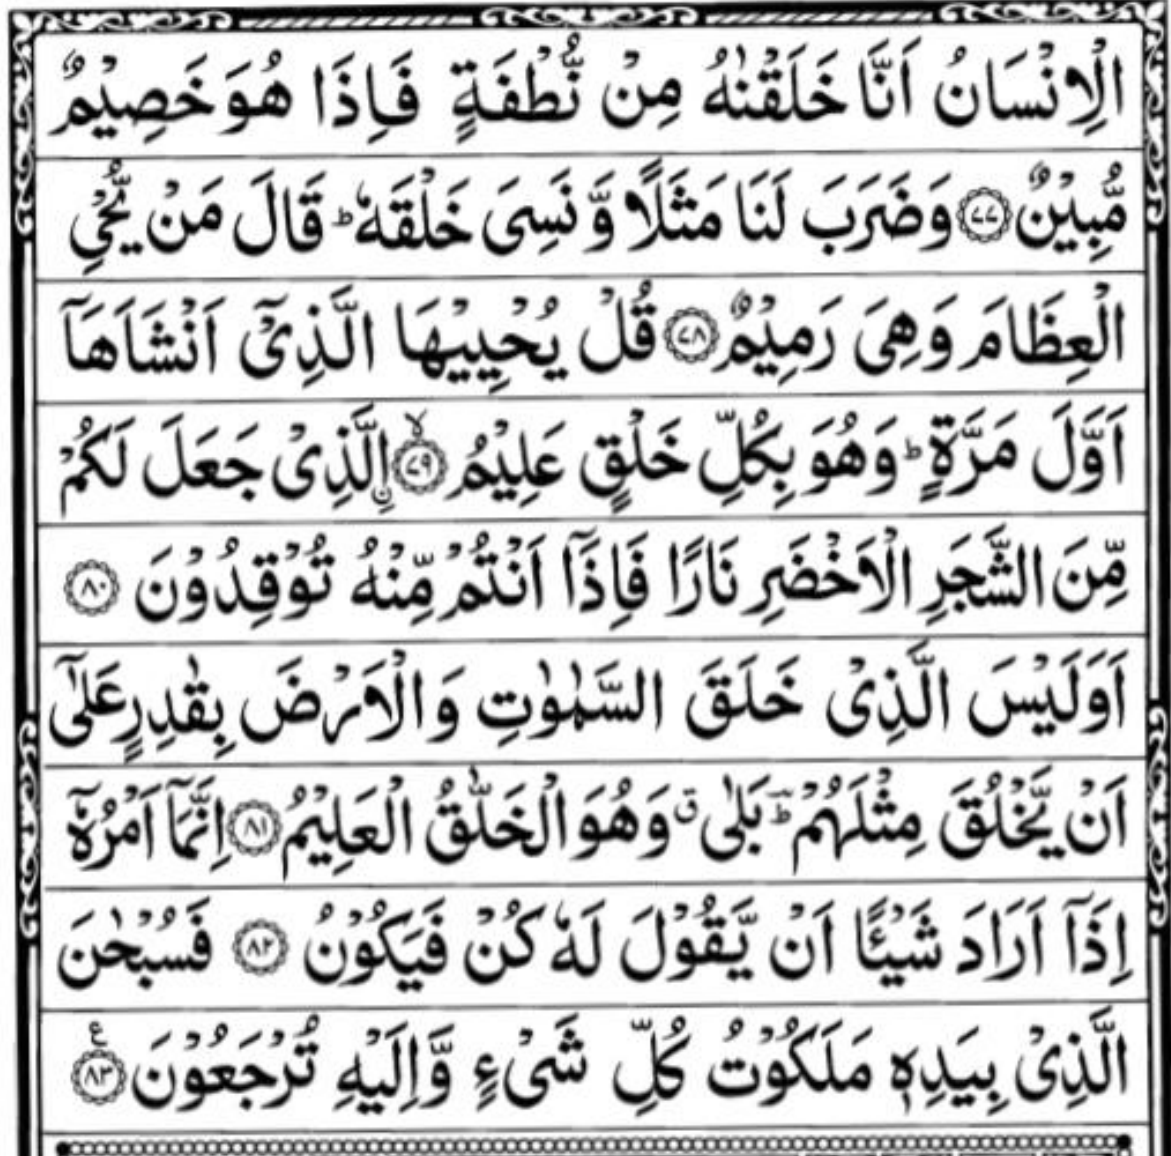 الْاِنْسَانُ اَنَّا خَلَقْنٰهُ مِنْ نُّطْفَةٍ فَاِذَا هُوَ خَصِيْمٌ
مُّبِيْنٌ ۝٧٧ وَضَرَبَ لَنَا مَثَلًا وَّنَسِىَ خَلْقَهٗ ؕ قَالَ مَنْ يُّحْىِ
الْعِظَامَ وَهِىَ رَمِيْمٌ ۝٧٨ قُلْ يُحْيِيْهَا الَّذِىْۤ اَنْشَاَهَاۤ
اَوَّلَ مَرَّةٍ ؕ وَهُوَ بِكُلِّ خَلْقٍ عَلِيْمُ ۙ۝٧٩ اۨلَّذِىْ جَعَلَ لَكُمْ
مِّنَ الشَّجَرِ الْاَخْضَرِ نَارًا فَاِذَاۤ اَنْتُمْ مِّنْهُ تُوْقِدُوْنَ ۝٨٠
اَوَلَيْسَ الَّذِىْ خَلَقَ السَّمٰوٰتِ وَالْاَرْضَ بِقٰدِرٍ عَلٰۤى
اَنْ يَّخْلُقَ مِثْلَهُمْ ؕ بَلٰى ق وَهُوَ الْخَلّٰقُ الْعَلِيْمُ ۝٨١ اِنَّمَاۤ اَمْرُهٗۤ
اِذَاۤ اَرَادَ شَيْـًٔا اَنْ يَّقُوْلَ لَهٗ كُنْ فَيَكُوْنُ ۝٨٢ فَسُبْحٰنَ
الَّذِىْ بِيَدِهٖ مَلَكُوْتُ كُلِّ شَىْءٍ وَّاِلَيْهِ تُرْجَعُوْنَ ۝٨٣ ع